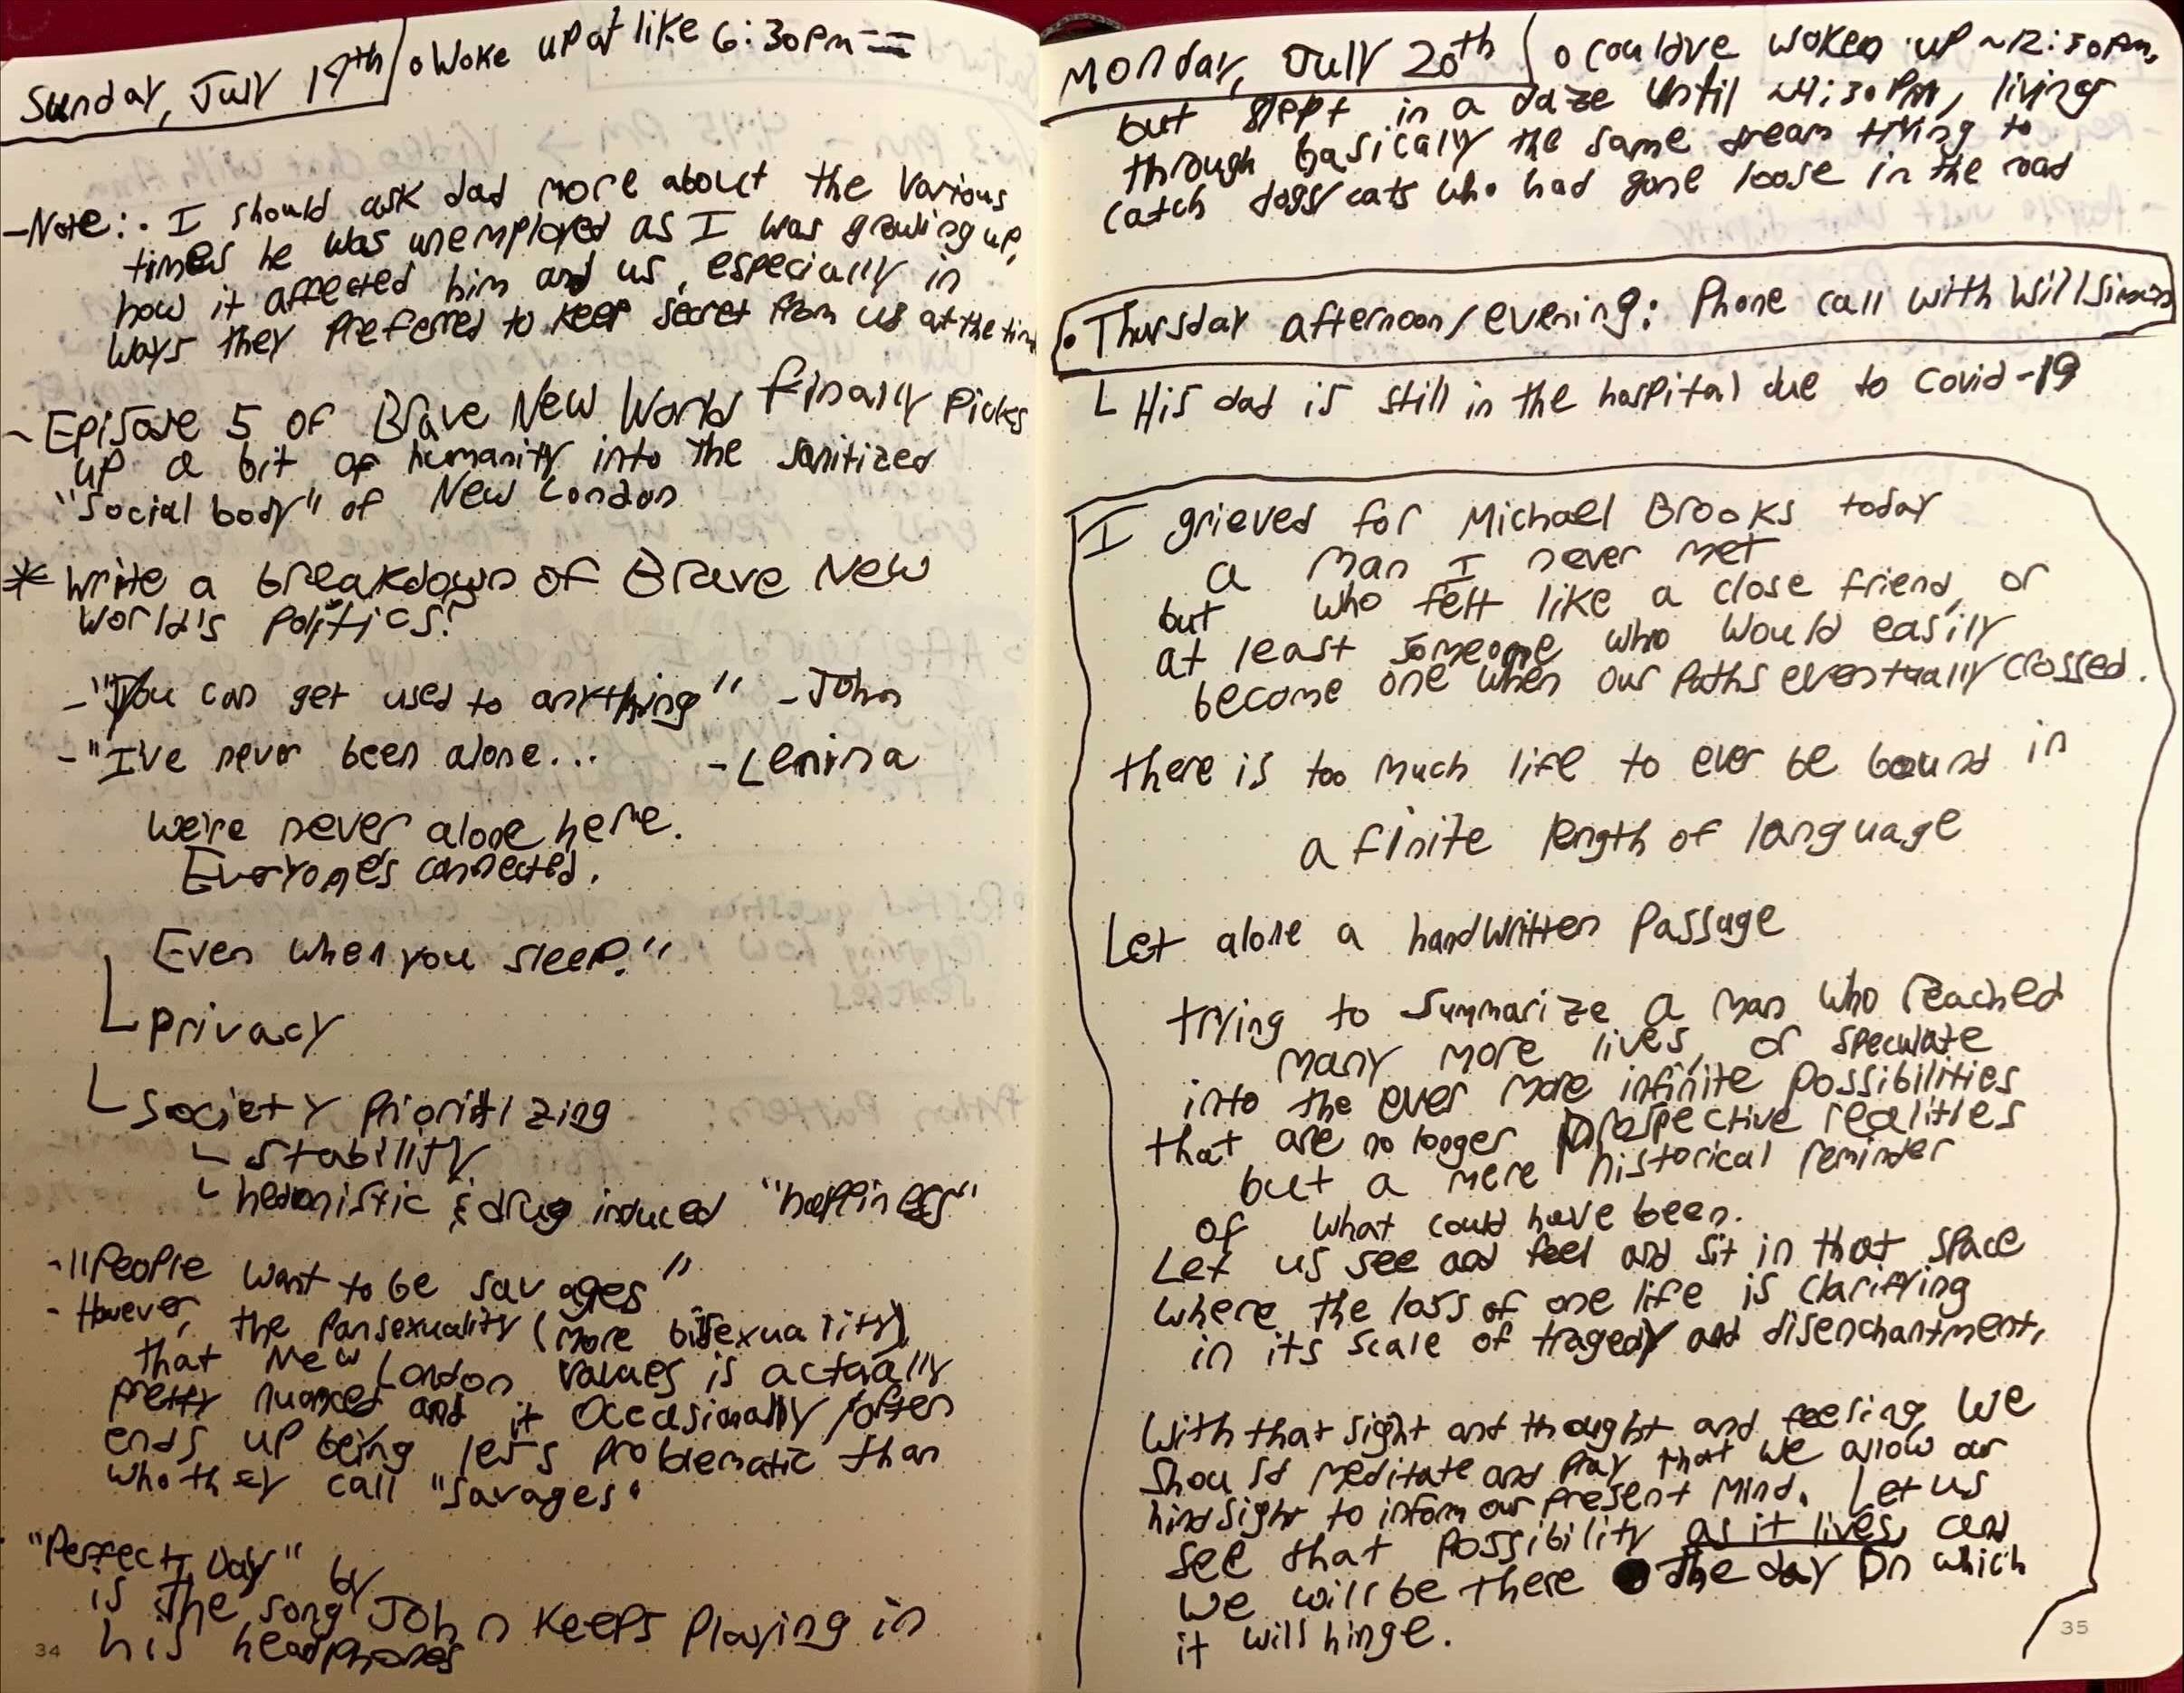 Sunday, July 19th
o Woke up at like 6:30pm
-Note: . I should ask dad more about the various
times he was unemployed as I was growing up,
how it affected him and us, especially in
ways they preferred to keep secret from us at the time
- Episode 5 of Brave New World finally picks
up a bit of humanity into the sanitized
"social body" of New London
* Write a breakdown of Brave New
World's politics?
- "You can get used to anything" - John
- "I've never been alone... - Lenina
We're never alone here.
Everyone's connected.
Even when you sleep."
privacy
society prioritizing
stability
hedonistic & drug induced "happiness"
- "People want to be savages"
- However, the pansexuality (more bisexuality)
that New London values is actually
pretty nuanced and it occasionally/often
ends up being less problematic than
who they call "savages"
"Perfect Day" by
is the song John keeps playing in
his headphones
34
Monday, July 20th
o could've woken up ~12:30pm,
but slept in a daze until ~4:30PM, living
through basically the same dream trying to
catch dogs/cats who had gone loose in the road
• Thursday afternoon/evening: Phone call with Will Simon
His dad is still in the hospital due to Covid-19
I grieved for Michael Brooks today
a man I never met
but who felt like a close friend, or
at least someone who would easily
become one when our paths eventually crossed.
there is too much life to ever be bound in
a finite length of language
Let alone a handwritten passage
trying to summarize a man who reached
many more lives, or speculate
into the ever more infinite possibilities
that are no longer prospective realities
but a mere historical reminder
of what could have been.
Let us see and feel and sit in that space
where the loss of one life is clarifying
in its scale of tragedy and disenchantment,
With that sight and thought and feeling, we
should meditate and pray that we allow our
hindsight to inform our present mind. Let us
see that possibility as it lives, and
we will be there the day on which
it will hinge.
35